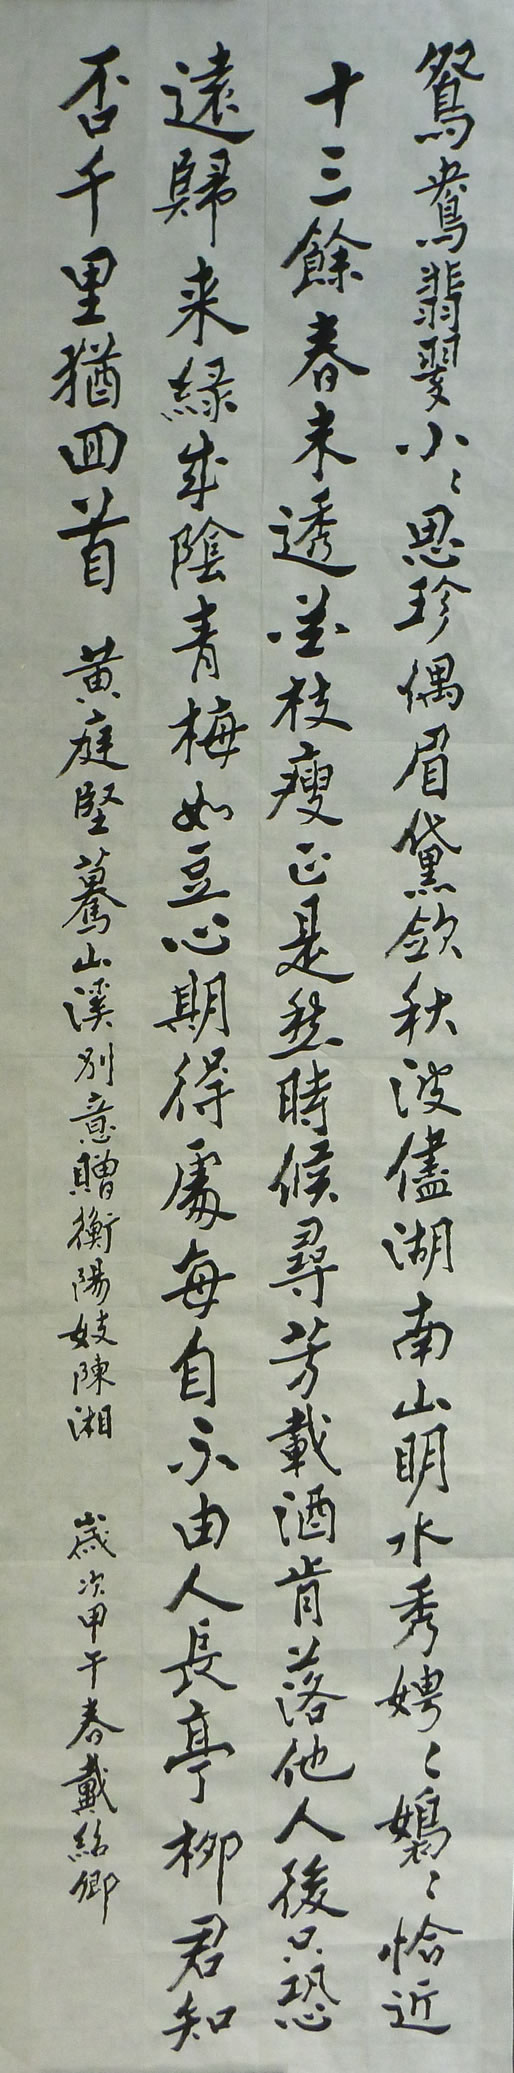 鴛鴦翡翠小〻思珍偶眉黛斂秋波儘湖南山明水秀娉〻嫋〻恰近
十三餘春未透花枝瘦正是愁時候尋芳載酒肯落他人後只恐
遠歸来緑成陰青梅如豆心期得處每自不由人長亭柳君知
否千里猶回首 黄庭堅驀山溪別意贈衡陽妓陳湘 歲次甲午春戴紹卿